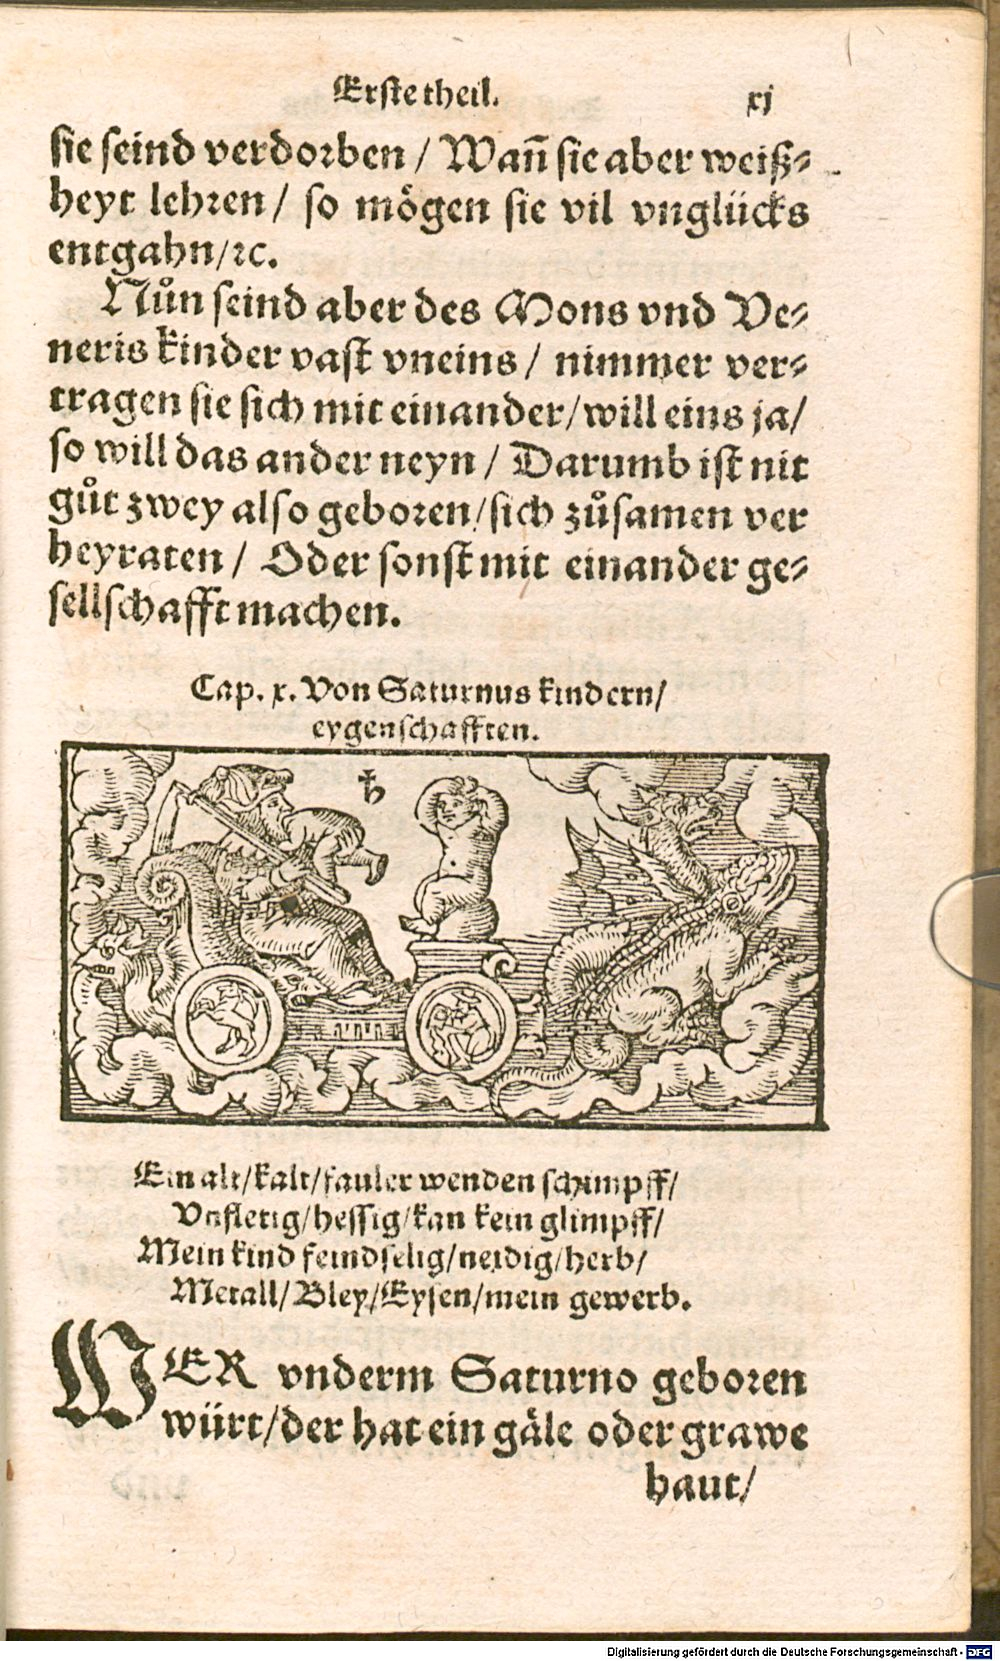 Erste theil. xj
sie seind verdorben / Wañ sie aber weiß⸗
heyt lehren / so mögen sie vil vnglücks
entgahn/ꝛc.
Nůn seind aber des Mons vnd Ve⸗
neris kinder vast vneins / nimmer ver⸗
tragen sie sich mit einander/will eins ja/
so will das ander neyn / Darumb ist nit
gůt zwey also geboren/sich zůsamen ver
heyraten / Oder sonst mit einander ge⸗
sellschafft machen.
Cap. x. Von Saturnus kindern/
eygenschafften.
♄
Ein alt/kalt/fauler wenden schimpff/
Vnfletig/hessig/kan kein glimpff/
Mein kind feindselig/neidig/herb/
Metall/Bley/Eysen/mein gewerb.
WER vnderm Saturno geboren
würt/der hat ein gäle oder grawe
haut/
Digitalisierung gefördert durch die Deutsche Forschungsgemeinschaft - DFG